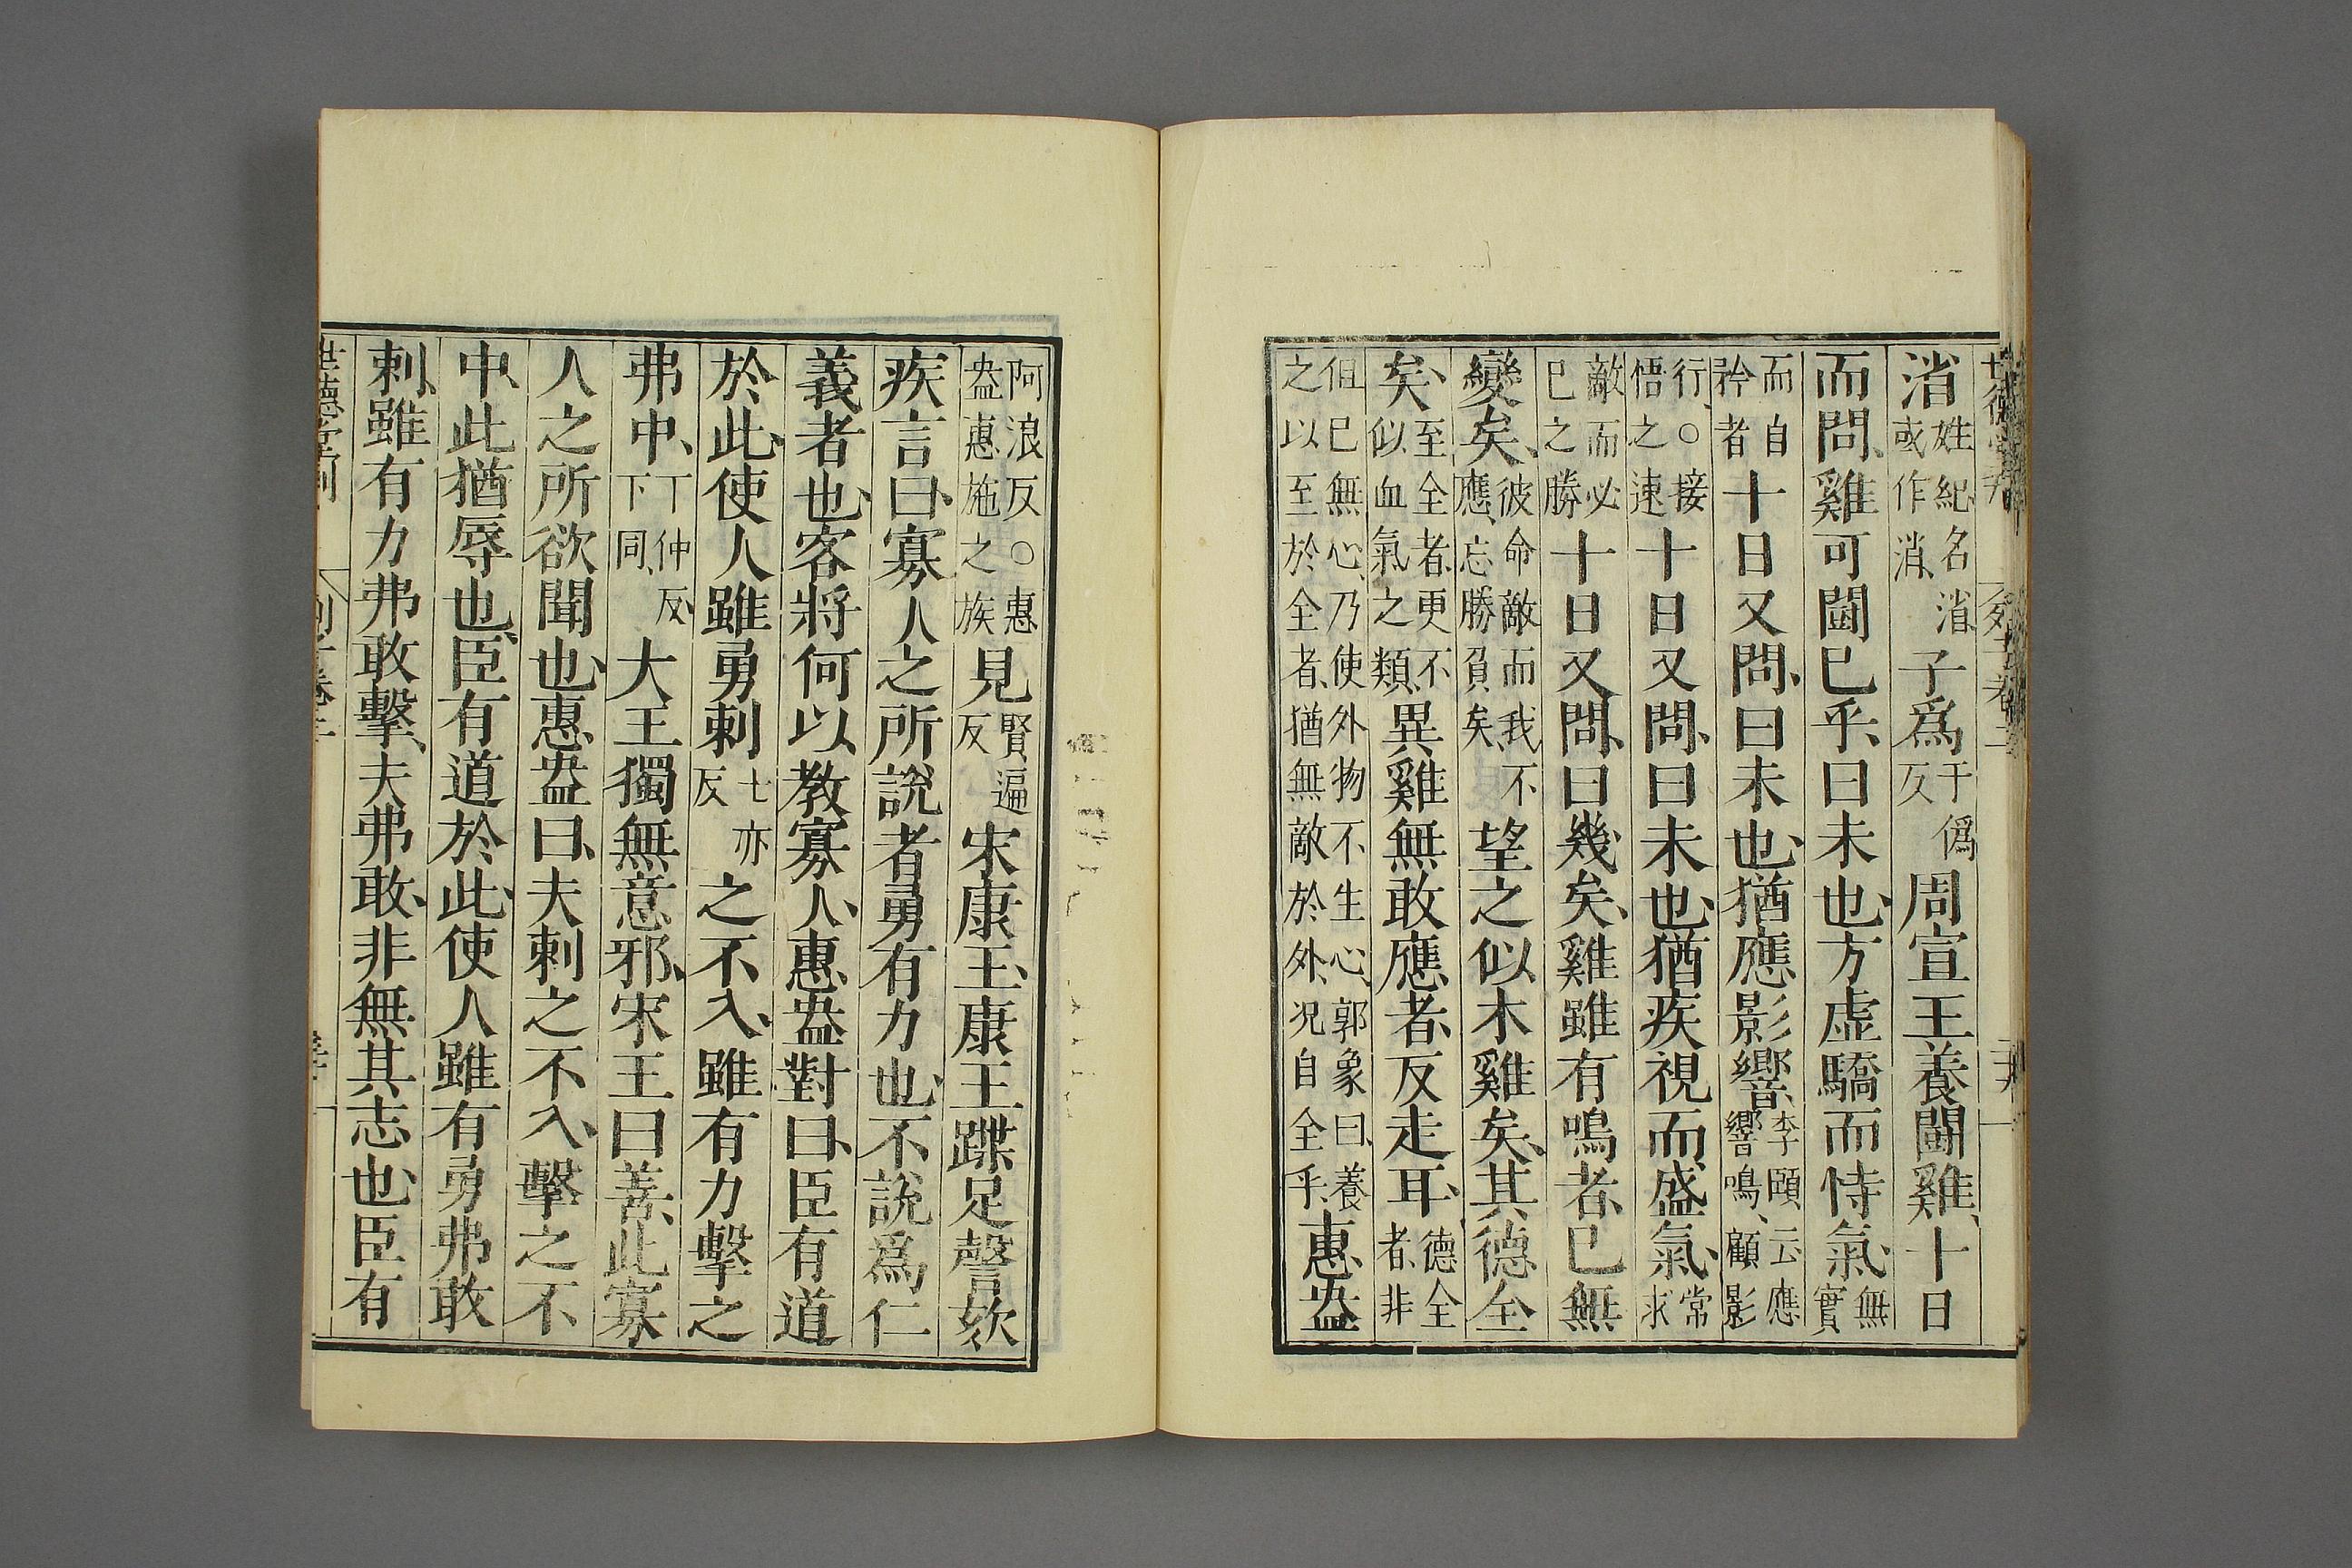 渻姓紀名渻或作消子爲于僞反周宣王養鬬雞、十日
而問、雞可鬬已乎、曰未也、方虛驕而恃氣、無實
而自矜者十日又問、曰未也、猶應影響、李頤云應響鳴、顧影
行、○接悟之速十日又問、曰未也、猶疾視而盛氣、常求
敵而必已之勝十日又問、曰幾矣、雞雖有鳴者、已無
變矣、彼命敵而我不應、忘勝負矣、望之似木雞矣、其德全
矣、至全者更不似血氣之類、異雞無敢應者、反走耳、德全者、非
但已無心、乃使外物不生心、郭象曰、養之以至於全者、猶無敵於外、况自全乎、惠盎
阿浪反○惠盎惠施之族見賢遍反宋康王、康王蹀足謦欬
疾言曰、寡人之所說者勇有力也、不說爲仁
義者也、客將何以教寡人、惠盎對曰、臣有道
於此、使人雖勇刺七亦反之不入、雖有力擊之
弗中、丁仲反、下同、大王獨無意邪、宋王曰善、此寡
人之所欲聞也、惠盎曰、夫刺之不入、擊之不
中、此猶辱也、臣有道於此、使人雖有勇弗敢
刺、雖有力弗敢擊、夫弗敢、非無其志也、臣有
世德堂刊